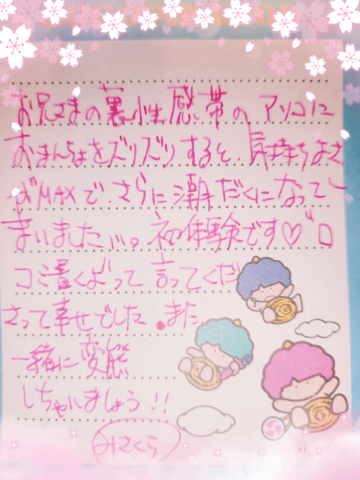 お兄さまの裏性感帯のアソコに
おまんちょをズリズリすると気持ちよさ
がMAXで、さらに潮だくになって
まいました…。初体験です♡ロ
コミ書くよって言ってくだ
さって幸せでした。また
一緒に変態
しちゃいましょう!!
みさくら